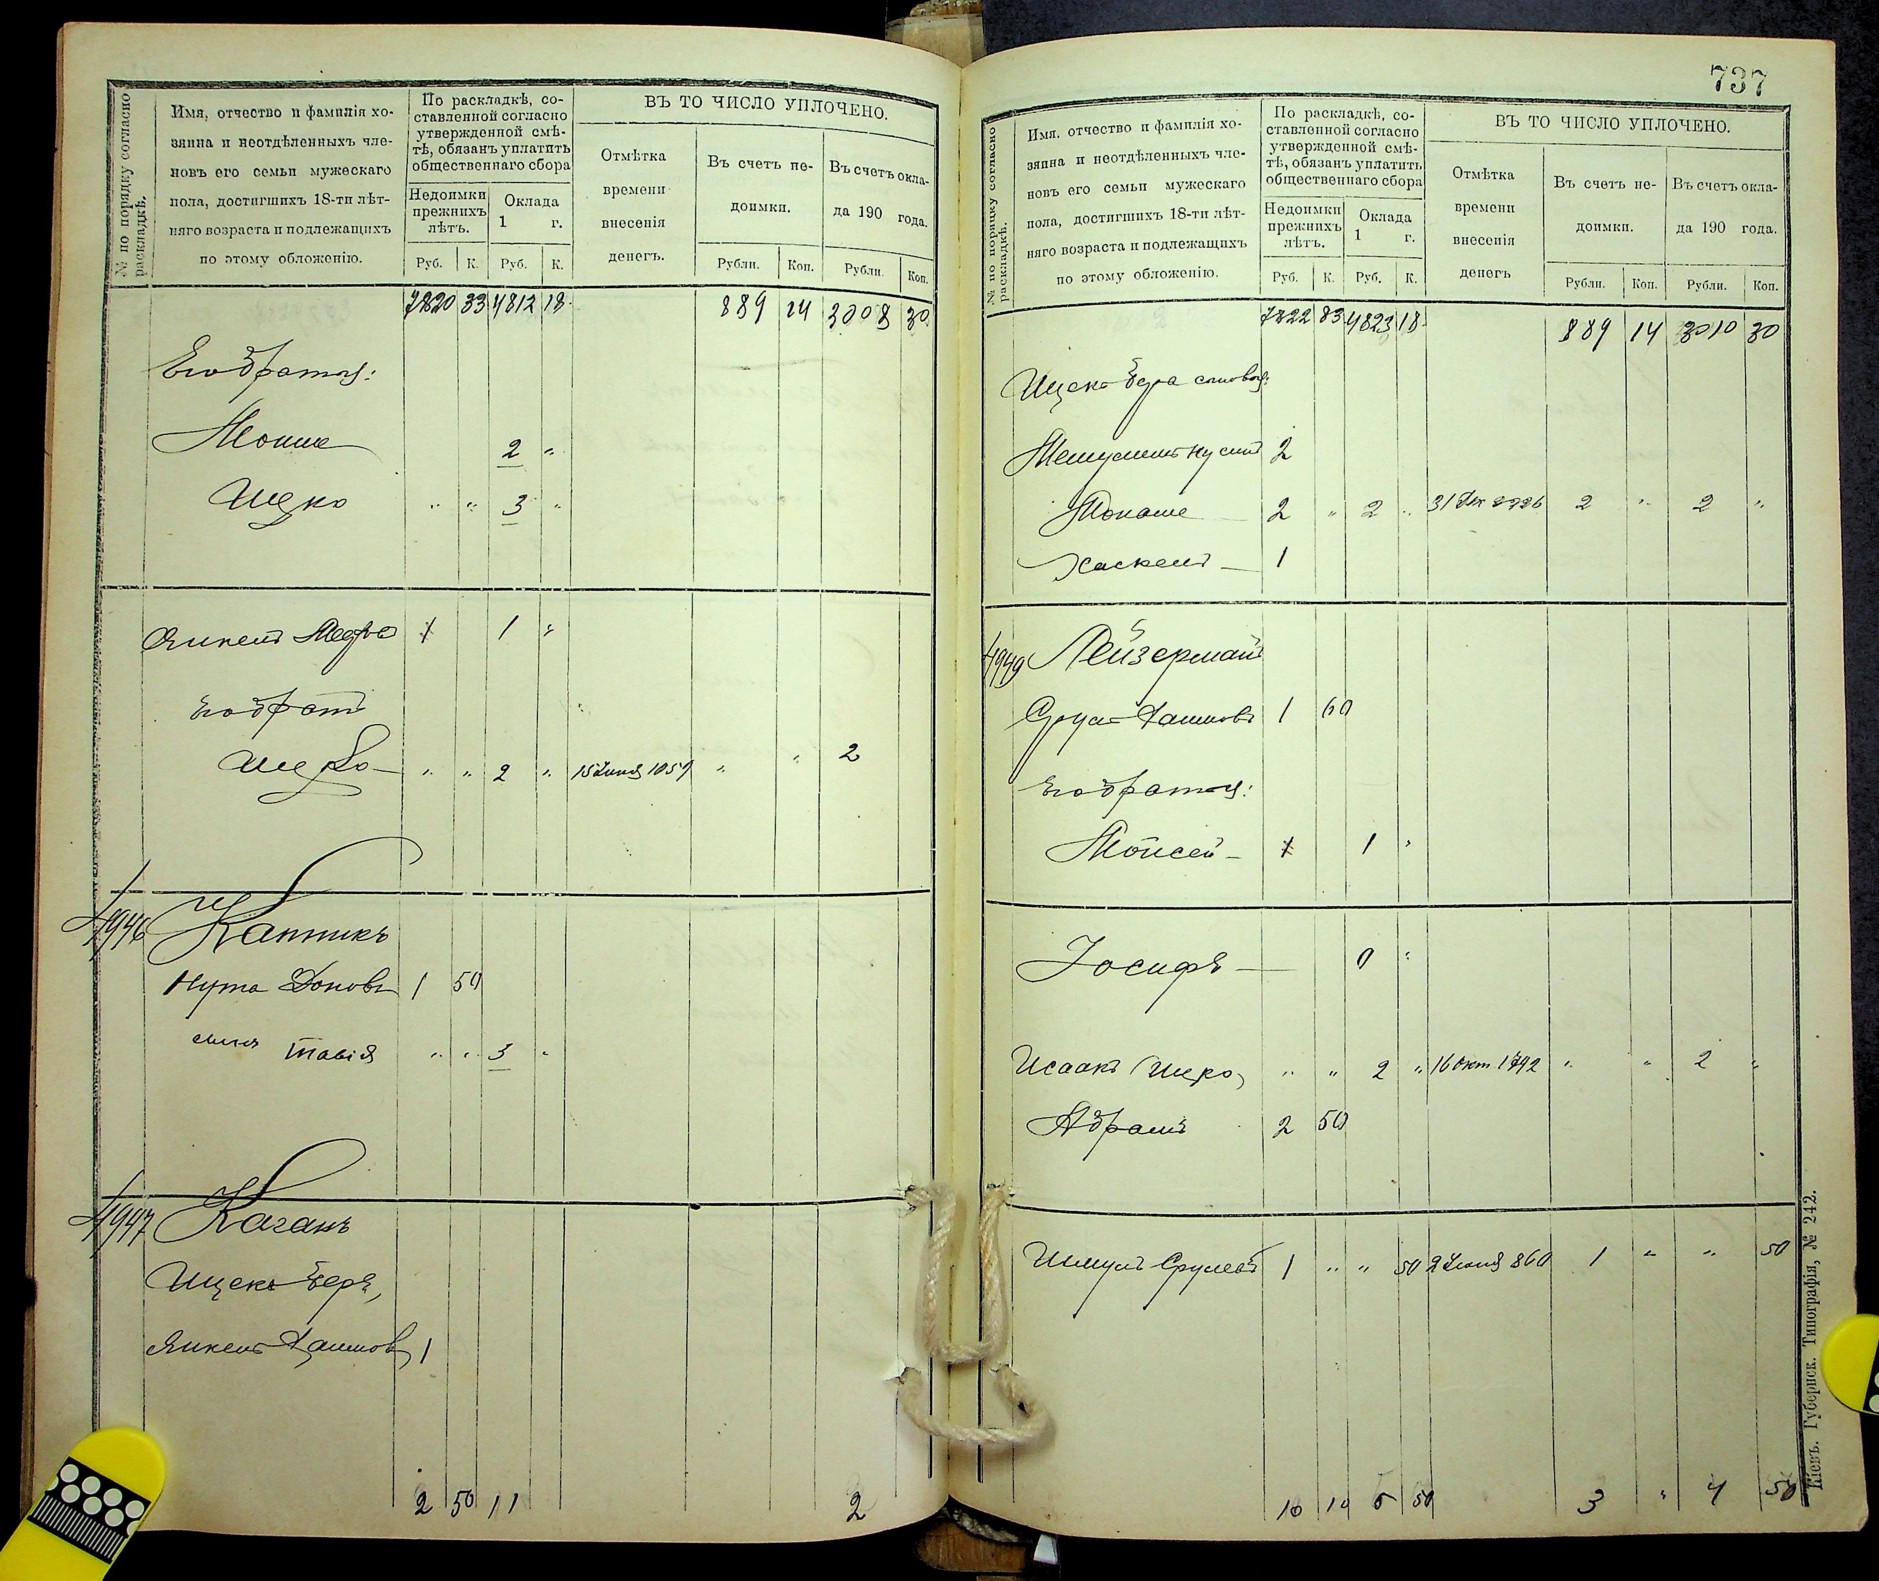 № по порядку согласно раскладкѣ.
Имя, отчество и фамилія хо-
зяина и неотдѣленныхъ чле-
новъ его семьи мужескаго
пола, достигшихъ 18-ти лѣт-
няго возраста и подлежащихъ
по этому обложенію.
По раскладкѣ, со-
ставленной согласно
утвержденной смѣ-
тѣ, обязанъ уплатить
общественнаго сбора
Недоимки
прежнихъ
лѣтъ.
Оклада
1 г.
Руб. К. Руб. К.
ВЪ ТО ЧИСЛО УПЛОЧЕНО.
Отмѣтка
времени
внесенія
денегъ.
Въ счетъ не-
доимки.
Въ счетъ окла-
да 190 года.
Рубли. Коп. Рубли. Коп.
7820 33 4812 18 889 14 3008 30
Его братья:
Мошко 2 "
Ицко " " 3 "
Янкель 1 1 "
Его братъ
Ицко " " 2 " 15 Іюня 1051 " " 2
4946 Каптикъ
Нута 1 50
сынъ Товій " " 3 "
4947 Каганъ
Ицекъ Беръ,
Янкель Хаимов 1
2 50 11 2
737
№ по порядку согласно раскладкѣ.
Имя, отчество и фамилія хо-
зяина и неотдѣленныхъ чле-
новъ его семьи мужескаго
пола, достигшихъ 18-ти лѣт-
няго возраста и подлежащихъ
по этому обложенію.
По раскладкѣ, со-
ставленной согласно
утвержденной смѣ-
тѣ, обязанъ уплатить
общественнаго сбора
Недоимки
прежнихъ
лѣтъ.
Оклада
1 г.
Руб. К. Руб. К.
ВЪ ТО ЧИСЛО УПЛОЧЕНО.
Отмѣтка
времени
внесенія
денегъ
Въ счетъ не-
доимки.
Въ счетъ окла-
да 190 года.
Рубли. Коп. Рубли. Коп.
7822 83 4823 18 889 14 3010 30
Ицекъ Бера сыновья:
Мешулемъ Нусинъ 2
Монаше 2 " 2 " 31 2226 2 " 2 "
Хаскель 1
4949 Лейзерманъ
Сруль Хаимовъ 1 60
Его братья:
Мойсей 1 1 "
Іосифъ "
Исаакъ Ицко, " " 2 " 16 Окт 1792 " " 2 "
Абрамъ 2 50
Шмуль Срулевъ 1 " " 50 2 Іюня 860 1 " " 50
10 10 5 50 3 " 4 50
Кіевъ. Губернск. Типографія, № 242.